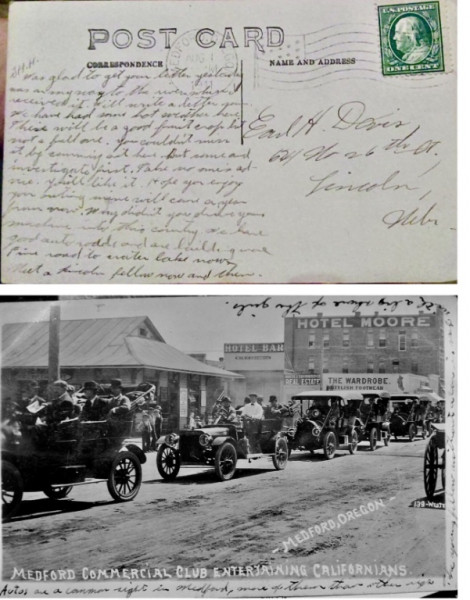 POST CARD
CORRESPONDENCE
NAME AND ADDRESS
U.S. POSTAGE
ONE CENT
E.H.H.
Was glad to get your letter yesterday
was on my way to the river when I
received it. Will write a letter soon.
We have had some hot weather here
There will be a good fruit crop but
not a full one. You couldn't miss
it by coming out here. But come and
investigate first. Take no ones ad-
vice. You'll like it. Hope you enjoy
you
from now. Why didn't you drive your
machine into this country. We have
good auto roads and are building one
fine road to crater lake now.
Meet a Lincoln fellow now and then.
Earl H. Davis
Lincoln,
Nebr
HOTEL MOORE
HOTEL BAR
REAL ESTATE
THE WARDROBE
- MEDFORD, OREGON -
MEDFORD COMMERCIAL CLUB ENTERTAINING CALIFORNIANS.
Autos are a common sight in Medford, more of them than other rigs